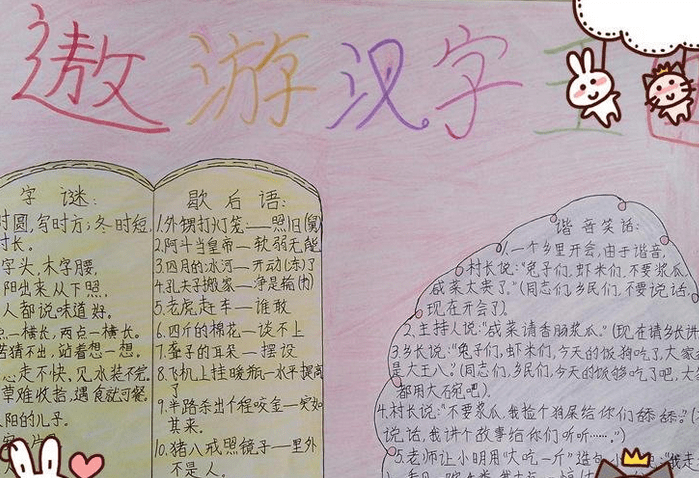 遨游汉字王
字谜:
时圆,写时方;冬时短,
时长。
字头,木字腰,
阳出来从下照,
人都说味道好。
点一横长,两点一横长。
苦猜不出,站着想一想。
心走不快,见水装不完,
草难收拾,遇食就可餐。
太阳的儿子。
歇后语:
1.外甥打灯笼——照旧(舅)
2.阿斗当皇帝——软弱无能
3.四月的冰河——开动(冻)了
4.孔夫子搬家——净是输(书)
5.老虎赶车——谁敢
6.四斤的棉花——谈不上
7.聋子的耳朵——摆设
8.飞机上挂暖瓶——水平提高
了
9.半路杀出个程咬金——突如
其来。
10.猪八戒照镜子——里外
不是人。
谐音笑话:
1.一个乡里开会,由于谐音,
村长说:“兔子们,虾米们,不要浆瓜,
咸菜太贵了。”(同志们,乡民们,不要说话,
现在开会了)
2.主持人说:“咸菜请香肠浆瓜。”(现在请乡长讲
3.乡长说:“兔子们,虾米们,今天的饭狗吃了,大家
是大王八。”(同志们,乡民们,今天的饭够吃了吧,大
都用大碗吧).
4.村长说:“不要浆瓜,我捡个狗屎给你们舔舔。”(
说话,我讲个故事给你们听听……。”)
5.老师让小明用“大吃一斤”造句,小